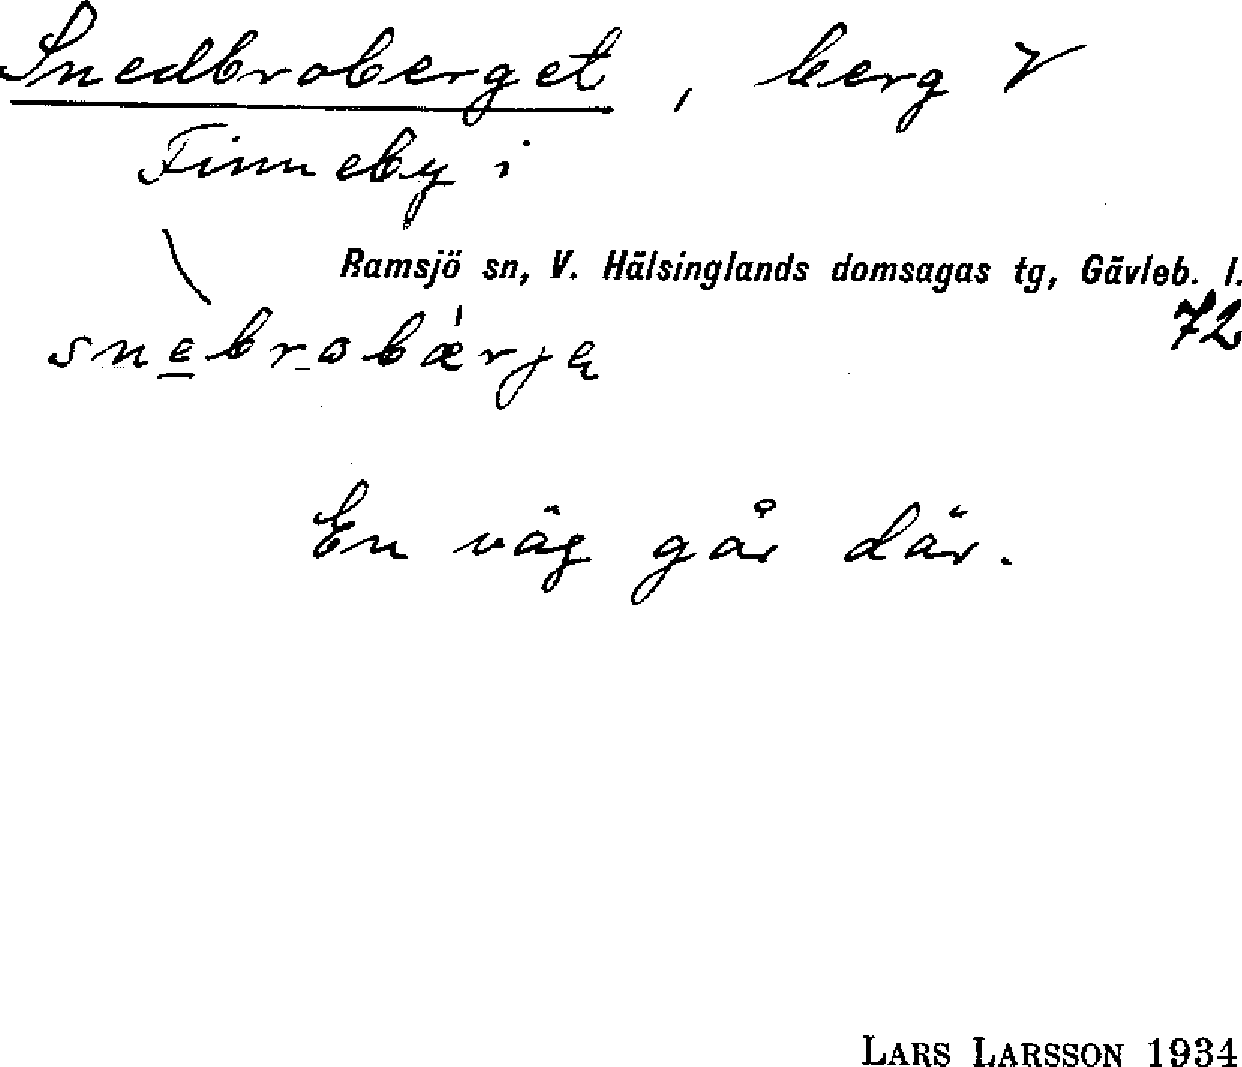 Snedbroberget, berg V
Finneby i
Ramsjö sn, V. Hälsinglands domsagas tg, Gävleb. l.
72
snebrobærja
En väg går där.
LARS LARSSON 1934